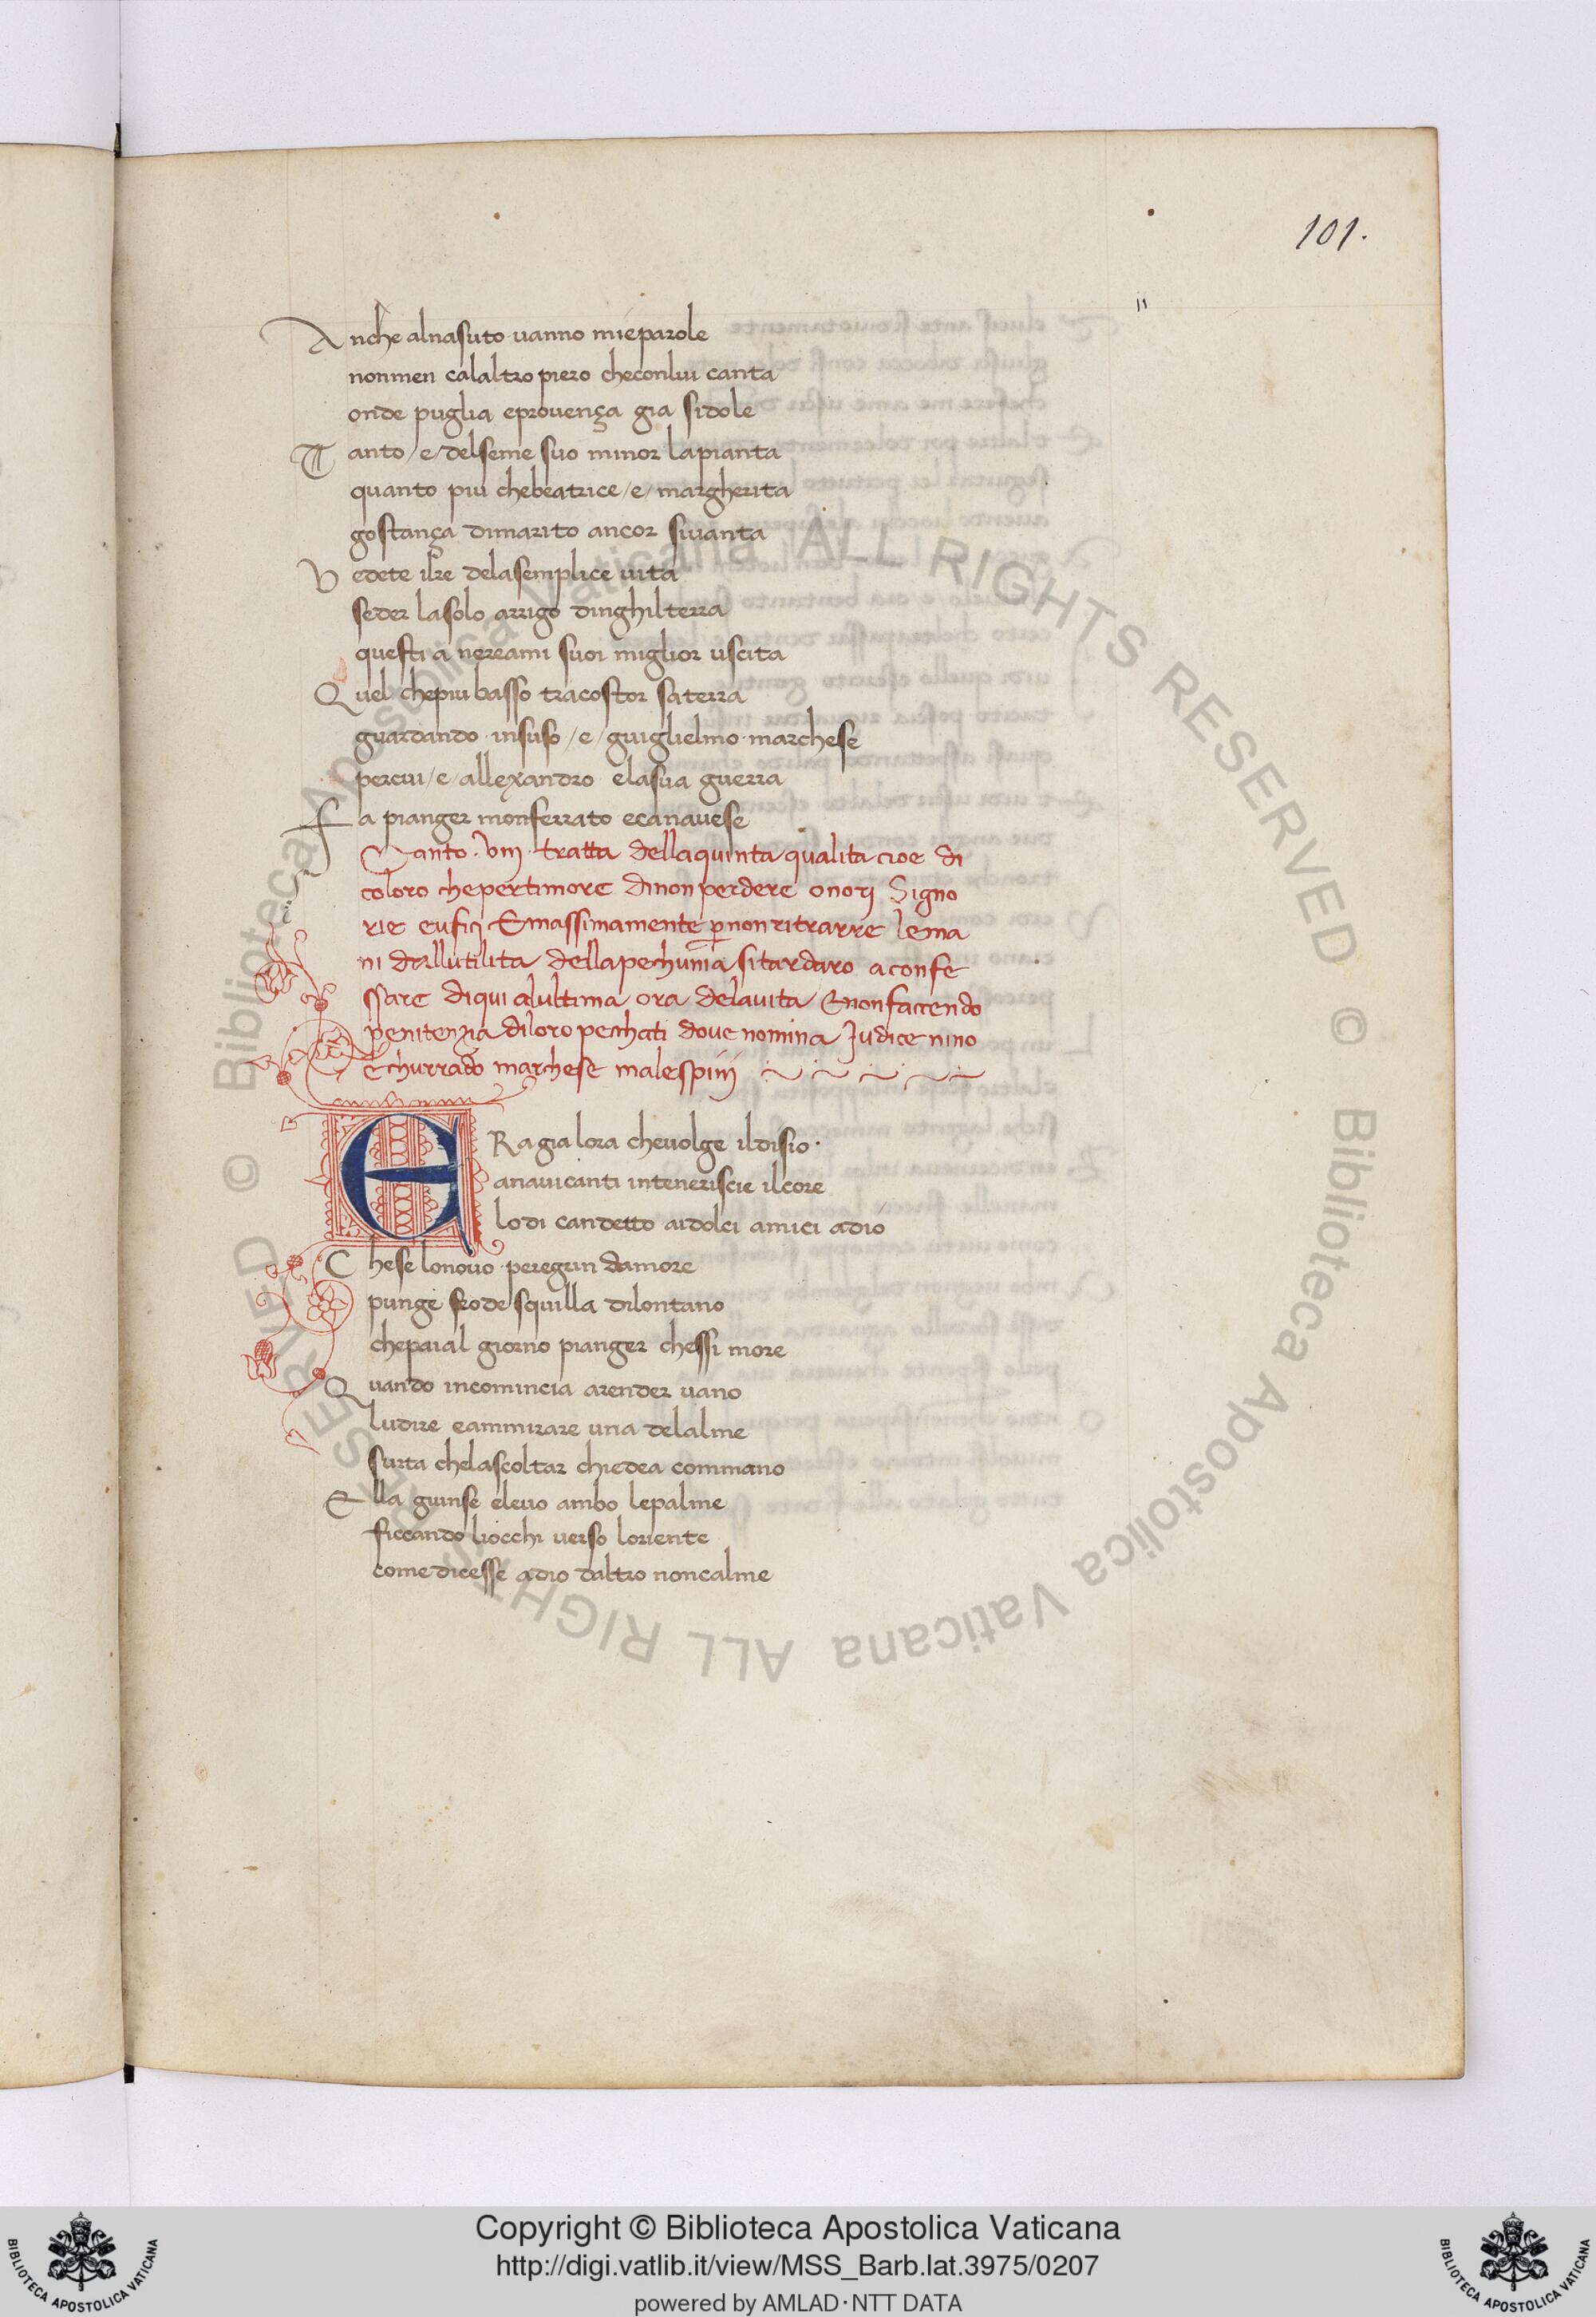 101.
Anche alnasuto uanno mieparole
nonmen calaltro piero checonlui canta
onde puglia eprouença gia sidole
Tanto / e / delseme suo minor lapianta
quanto piu chebeatrice / e / margherita
gostança dimarito ancor siuanta
Vedete ilre delasemplice uita
seder lasolo arrigo dinghilterra
questi a nereami suoi miglior uscita
Quel chepiu basso tracostor saterra
guardando insuso / e / guiglielmo marchese
percui / e / allexandro elasua guerra
Fa pianger monferrato ecanauese
Canto · VIII · tratta dellaquinta qualita cioe di
coloro chepertimore dinon perdere onorj Signo
rie eufici Emassimamente ꝑnon ritrarre lema
ni dallutilita dellapechunia sitardaro aconfe
ssare diqui alultima ora delauita Enonfaccendo
penitenzia diloro pecchati doue nomina Judice nino
Echurrado marchese malespinj
ERa gia lora cheuolge ildisio ·
anauicanti inteneriscie ilcore
lodi candetto aidolci amici adio
Chese lonouo peregrin damore
punge seode squilla dilontano
chepaial giorno pianger chessi more
Quando incomincia arender uano
ludire eammirare una delalme
surta chelascoltar chiedea commano
Ella giunse eleuo ambo lepalme
ficcando liocchi uerso loriente
come dicesse adio daltro noncalme
© Biblioteca Apostolica Vaticana ALL RIGHTS RESERVED © Biblioteca Apostolica Vaticana ALL RIGHTS RESERVED
Copyright © Biblioteca Apostolica Vaticana
http://digi.vatlib.it/view/MSS_Barb.lat.3975/0207
powered by AMLAD·NTT DATA
BIBLIOTECA APOSTOLICA VATICANA
BIBLIOTECA APOSTOLICA VATICANA